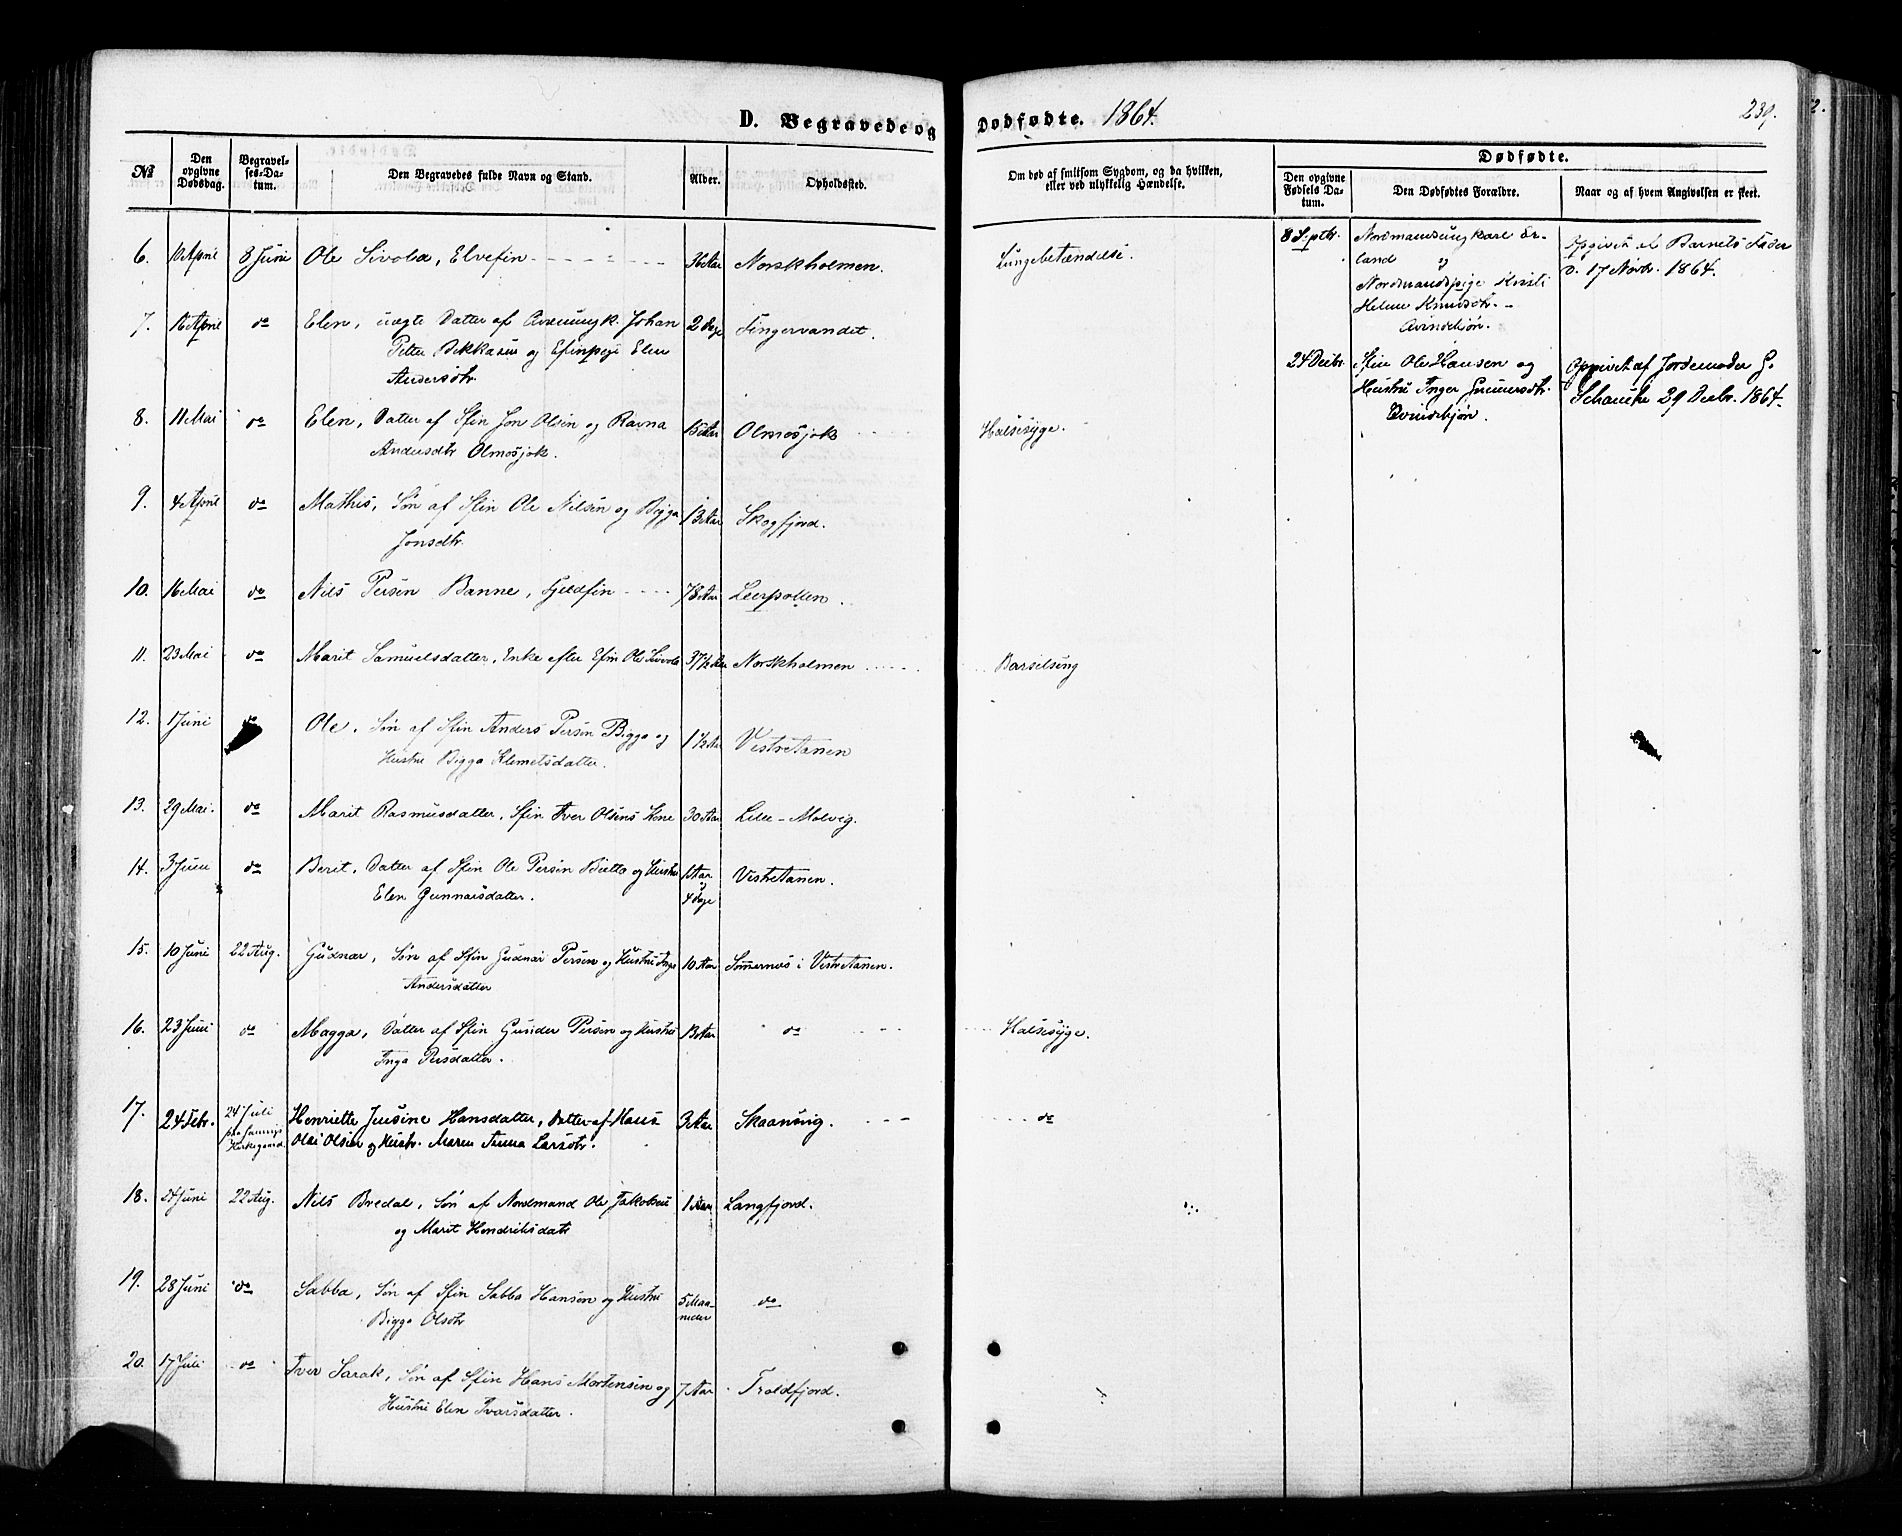 D. Begravede og Dødfødte. 1864.
239.
2.
№
Den opgivne Dødsdag.
Begravelses-Datum.
Den Begravedes fulde Navn og Stand.
Alder.
Opholdssted.
Om død af smitsom Sygdom, og da hvilken, eller ved ulykkelig Hændelse.
Dødfødte.
Den opgivne Fødsels Datum.
Den Dødfødtes Forældre.
Naar og af hvem Angivelsen er skeet.
6. April 8 Juni Ole Sivola, Elvefin 36 Aar Norskholmen. Lungebetændelse.
7. 16 April do Elen, uægte Datter af Johan 2 Dage Fingervandet.
Petter Bekkasen og Efinpige Elen
Andersdtr.
8. 11 Mai do Elen, Datter af Sfin Jon Olsen og Ravna 15 Aar Olmosjok Halssyge.
Andersdtr Olmosjok.
9. 4 April do Mathis, Søn af Sfin Ole Nilsen og Bigga 13 Aar Skogfjord.
Jonsdtr.
10. 16 Mai do Nils Persen Banne, Fjeldfin 78 Aar Leerpollen.
11. 23 Mai do Marit Samuelsdatter, Enke efter Efin Ole Sivola 37½ Aar Norskholmen Barselseng
12. 1 Juni do Ole, Søn af Sfin Anders Persen Bigga og 1½ Aar Vestretanen
Hustru Bigga Klemetsdatter.
13. 29 Mai. do Marit Rasmusdatter, Sfin Iver Olsens Kone 30 Aar Lille-Molvig.
14. 3 Juni do Berit, Datter af Sfin Ole Persen og Hustru 1 Aar Vestretanen.
Elen Gunnarsdatter. 4 Dage
15. 10 Juni 22 Aug. Gudnar, Søn af Sfin Gudnar Persen og Hustru Inga 10 Aar i Vestretanen.
Andersdatter
16. 23 Juni do Magga, Datter af Sfin Gunder Persen og Hustru 13 Aar do Halssyge.
Inga Persdatter.
17. 24 Febr. 24 Juli Henriette Jensine Hansdatter, Datter af Hans 3 Aar Skaansvig. do
Olai Olsen og Hustr. Maren Anna Larsdtr.
18. Juni 22 Aug. Nils Bredal, Søn af Nordmand Ole Jakobsen 1 Aar Langfjord.
og Marit Hendriksdatr
19. 28 Juni do Sabba, Søn af Sfin Sabba Hansen og Hustru 5 Maaneder do
Bigga Olsdtr
20. 17 Juli do Iver Sarak, Søn af Sfin Hans Mortensen og 7 Aar Troldfjord.
Hustru Elen Ivarsdatter.
8 Septbr. Nordmandsungkarl Erland
og
Nordmandspige Kirsti
Helene Knudsdtr.
Opgivet af Barnets Fader
d. 17 Novbr. 1864.
24 Decbr. Sfin Ole Hansen og
Hustru Inger Gunnersdtr
Opgivet af Jordemoder G.
Schanche 29 Decbr. 1864.